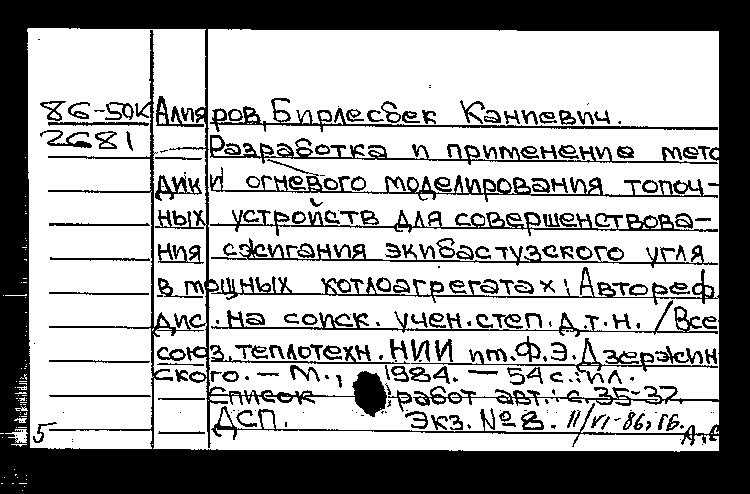 86-50К Алияров, Бирлесбек Каниевич.
2681 Разработка и применение мето
дики огневого моделирования топоч-
ных устройств для совершенствова-
ния сжигания экибастузского угля
в мощных котлоагрегатах: Автореф.
дис. на соиск. учен. степ. д.т.н. / Все
союз. теплотехн. НИИ им. Ф.Э. Дзержин
ского. — М., 1984. — 54 с.: ил.
Список работ авт.: с. 35-37.
ДСП. Экз. № 8. 11/VI-86,
5